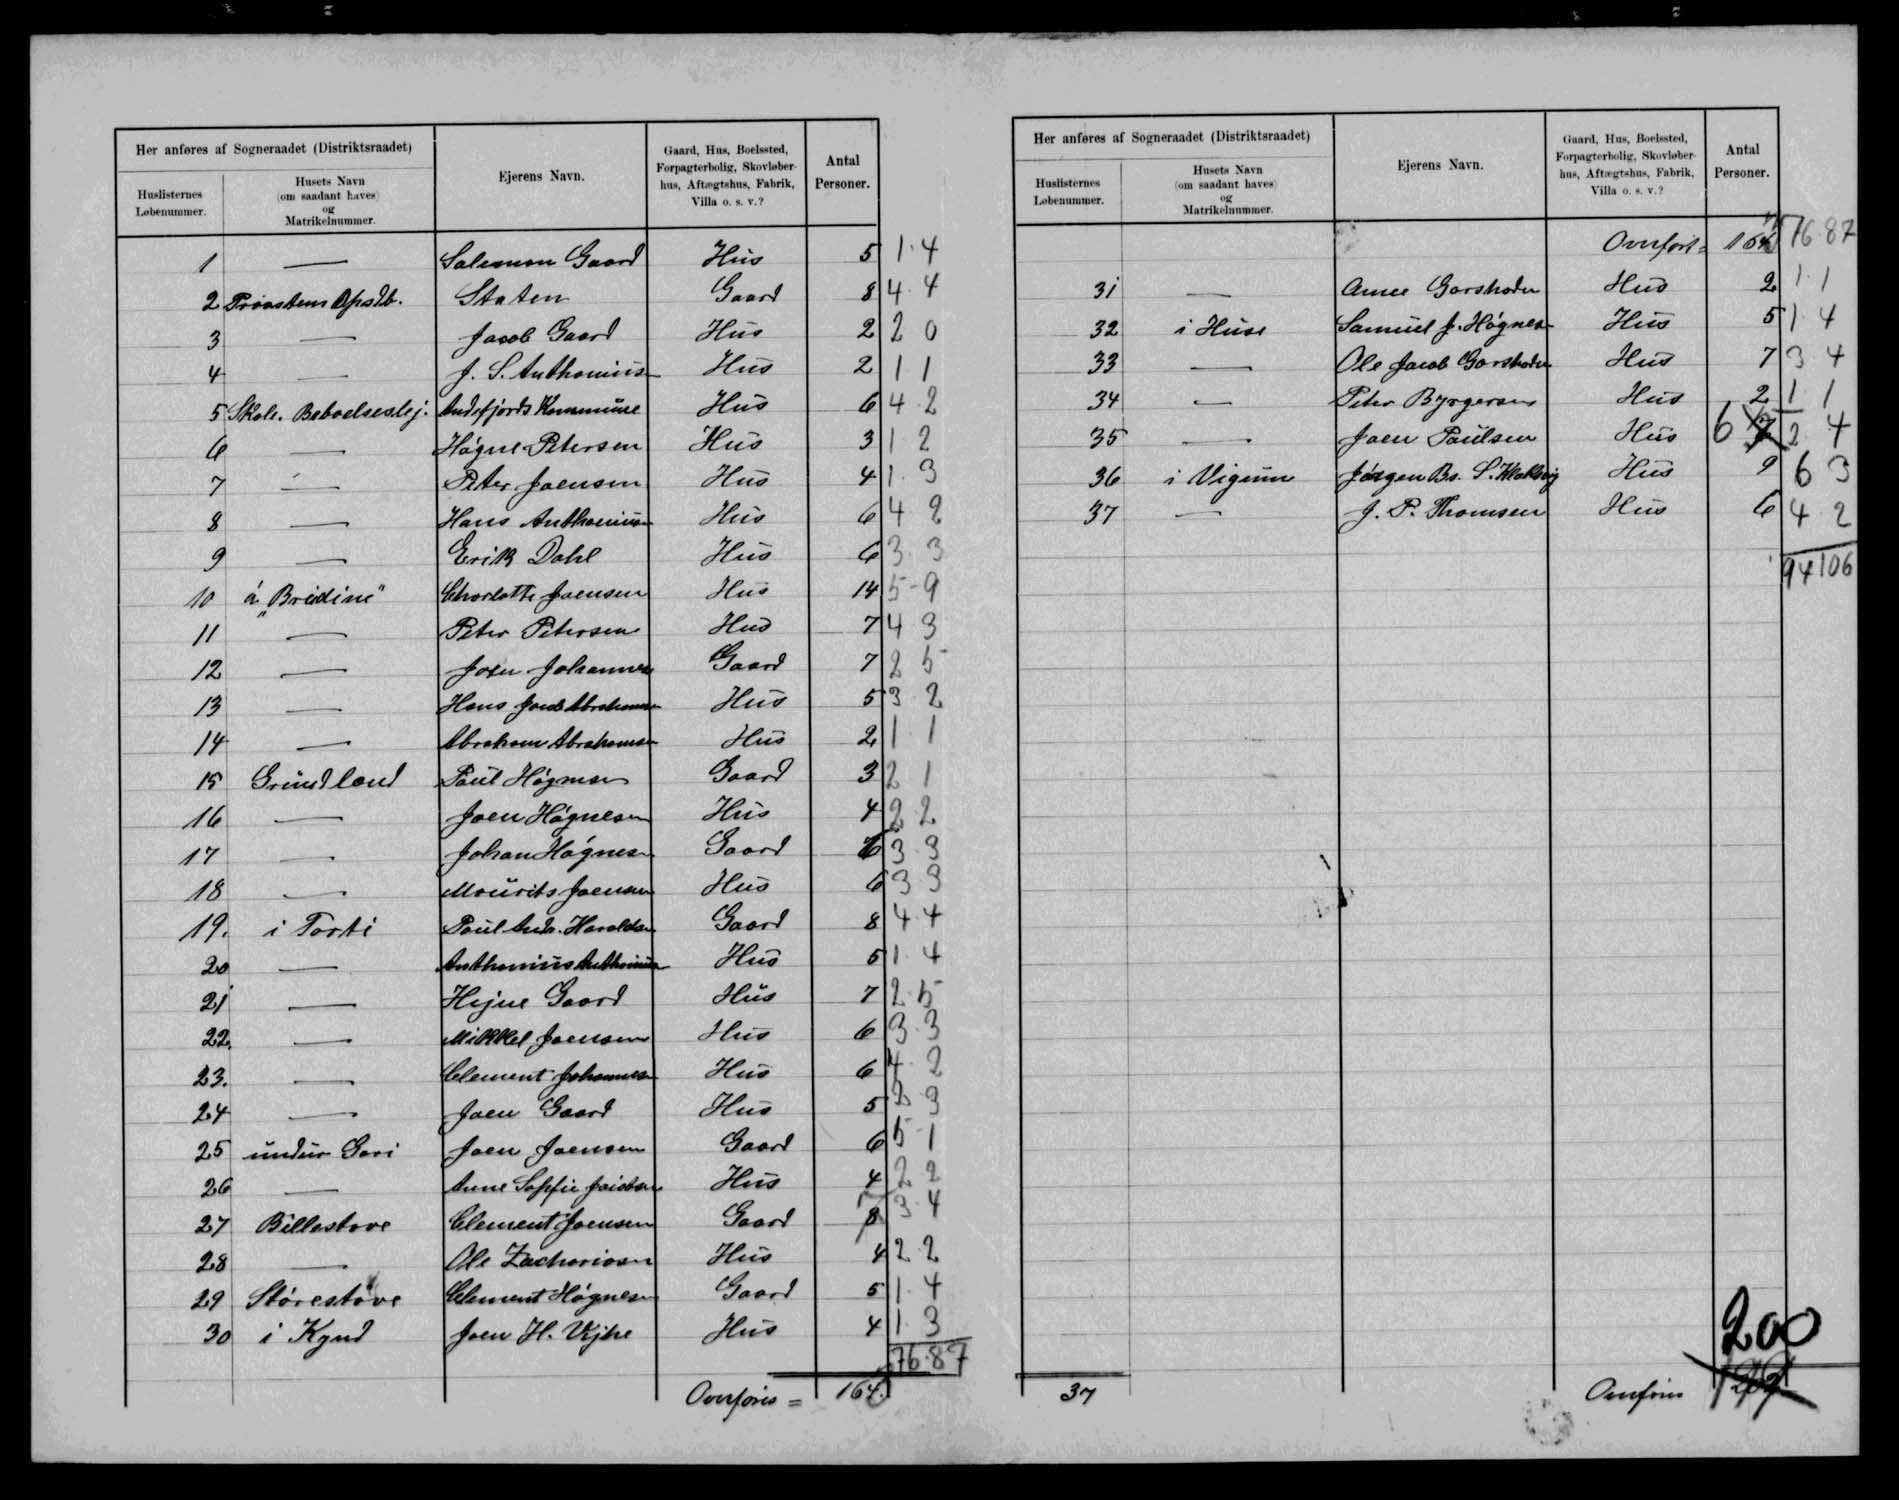 Her anføres af Sogneraadet (Distriktsraadet)
Huslisternes Løbenummer.
Husets Navn (om saadant haves) og Matrikelnummer.
Ejerens Navn.
Gaard, Hus, Boelssted, Forpagterbolig, Skovløberhus, Aftægtshus, Fabrik, Villa o. s. v.?
Antal Personer.
1 — Salomon Gaard Hus 5 1.4
2 Prøastens Gaard 8 4.4 Staten
3 — Jacob Gaard Hus 2 2 0
4 — J. S. Anthonius Hus 2 1 1
5 Skole. Beboelseslej. Andefjords Kommune Hus 6 4.2
6 — Høgne Petersen Hus 3 1 2
7 — Peter Joensen Hus 4 1.3
8 — Hans Anthonius Hus 6 4 2
9 — Erik Dahl Hus 6 3 3
10 á "Brúdini" Charlotte Joensen Hus 14 5-9
11 — Peter Petersen Hus 7 4 3
12 — Joen Johannes Gaard 7 2 5
13 — Hans Abrahams Hus 5 3.2
14 — Abraham Abrahams Hus 2 1 1
15 Grúndland Poul Høgnesen Gaard 3 2 1
16 — Joen Høgnesen Hus 4 2.2
17 — Johan Høgnesen Gaard 6 3.3
18 — Mourits Joensen Hus 6 3 3
19. i Torti Poul Andr. Haraldsen Gaard 8 4.4
20 — Anthonius Anthonius Hus 5 1.4
21 — Hejne Gaard Hus 7 2.5
22. — Mikkel Joensen Hus 6 3.3
23. — Clement Johannesen Hus 6 4.2
24 — Joen Gaard Hus 5 2 3
25 undur Gori Joen Joensen Gaard 6 5-1
26 — Anne Sofie Hus 4 2 2
27 Billastove Clement Joensen Gaard 7 8 3.4
28 — Ole Zachariasen Hus 4 2.2
29 Stórestove Clement Høgnesen Gaard 5 1.4
30 i Kynd Joen H. Vijhe Hus 4 1.3
76.87
Overføres = 164.
Her anføres af Sogneraadet (Distriktsraadet)
Huslisternes Løbenummer.
Husets Navn (om saadant haves) og Matrikelnummer.
Ejerens Navn.
Gaard, Hus, Boelssted, Forpagterbolig, Skovløberhus, Aftægtshus, Fabrik, Villa o. s. v.?
Antal Personer.
Overført = 164 76.87
31 — Anne Garshodn Hus 2 1.1
32 i Húse Samuel J. Høgnesen Hus 5 1.4
33 — Ole Jacob Garshodn Hus 7 3 4
34 — Peter Byrgersen Hus 2 1 1
35 — Joen Poulsen Hus 6 7 2.4
36 i Vigum Jørgen Bs. S. Klaksvig Hus 9 6 3
37 — J. P. Thomsen Hus 6 4 2
94 106
200
37 Overføres